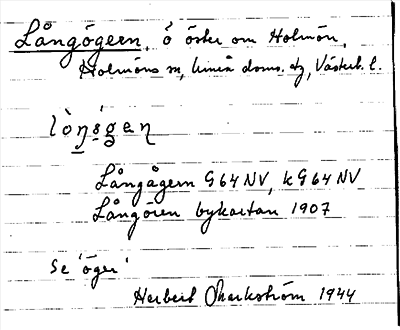 Långögern, ö öster om Holmön,
Holmöns sn, Umeå doms. dg, Västerb. l.
lòŋǿgeɳ
Långågern G64NV, kG64NV
Långören bykartan 1907
Se 'öger'
Herbert Markström 1944